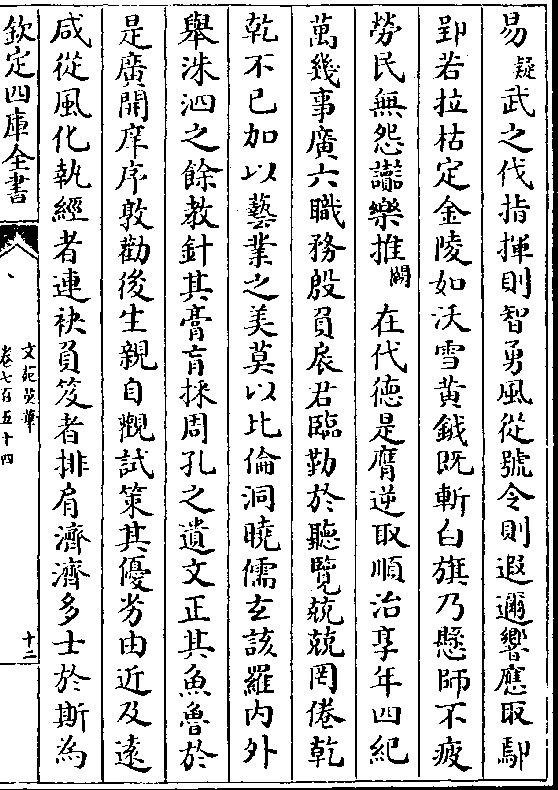 易疑武之伐指揮則智勇風從號令則遐邇響應取鄢
郢若拉枯定金陵如沃雪黄鉞既斬白旗乃懸師不疲
勞民無怨讟樂推闕　在代德是膺逆取順治享年四紀
萬幾事廣六職務殷負扆君臨勤於聽覽兢兢罔倦乾
乾不已加以藝業之美莫以比倫洞曉儒玄該羅内外
舉洙泗之餘教針其膏肓採周孔之遺文正其魚魯於
是廣開庠序敦勸後生親自觀試策其優劣由近及遠
咸從風化執經者連袂負笈者排肩濟濟多士於斯為
欽定四庫全書
文苑英華
卷七百五十四
十二